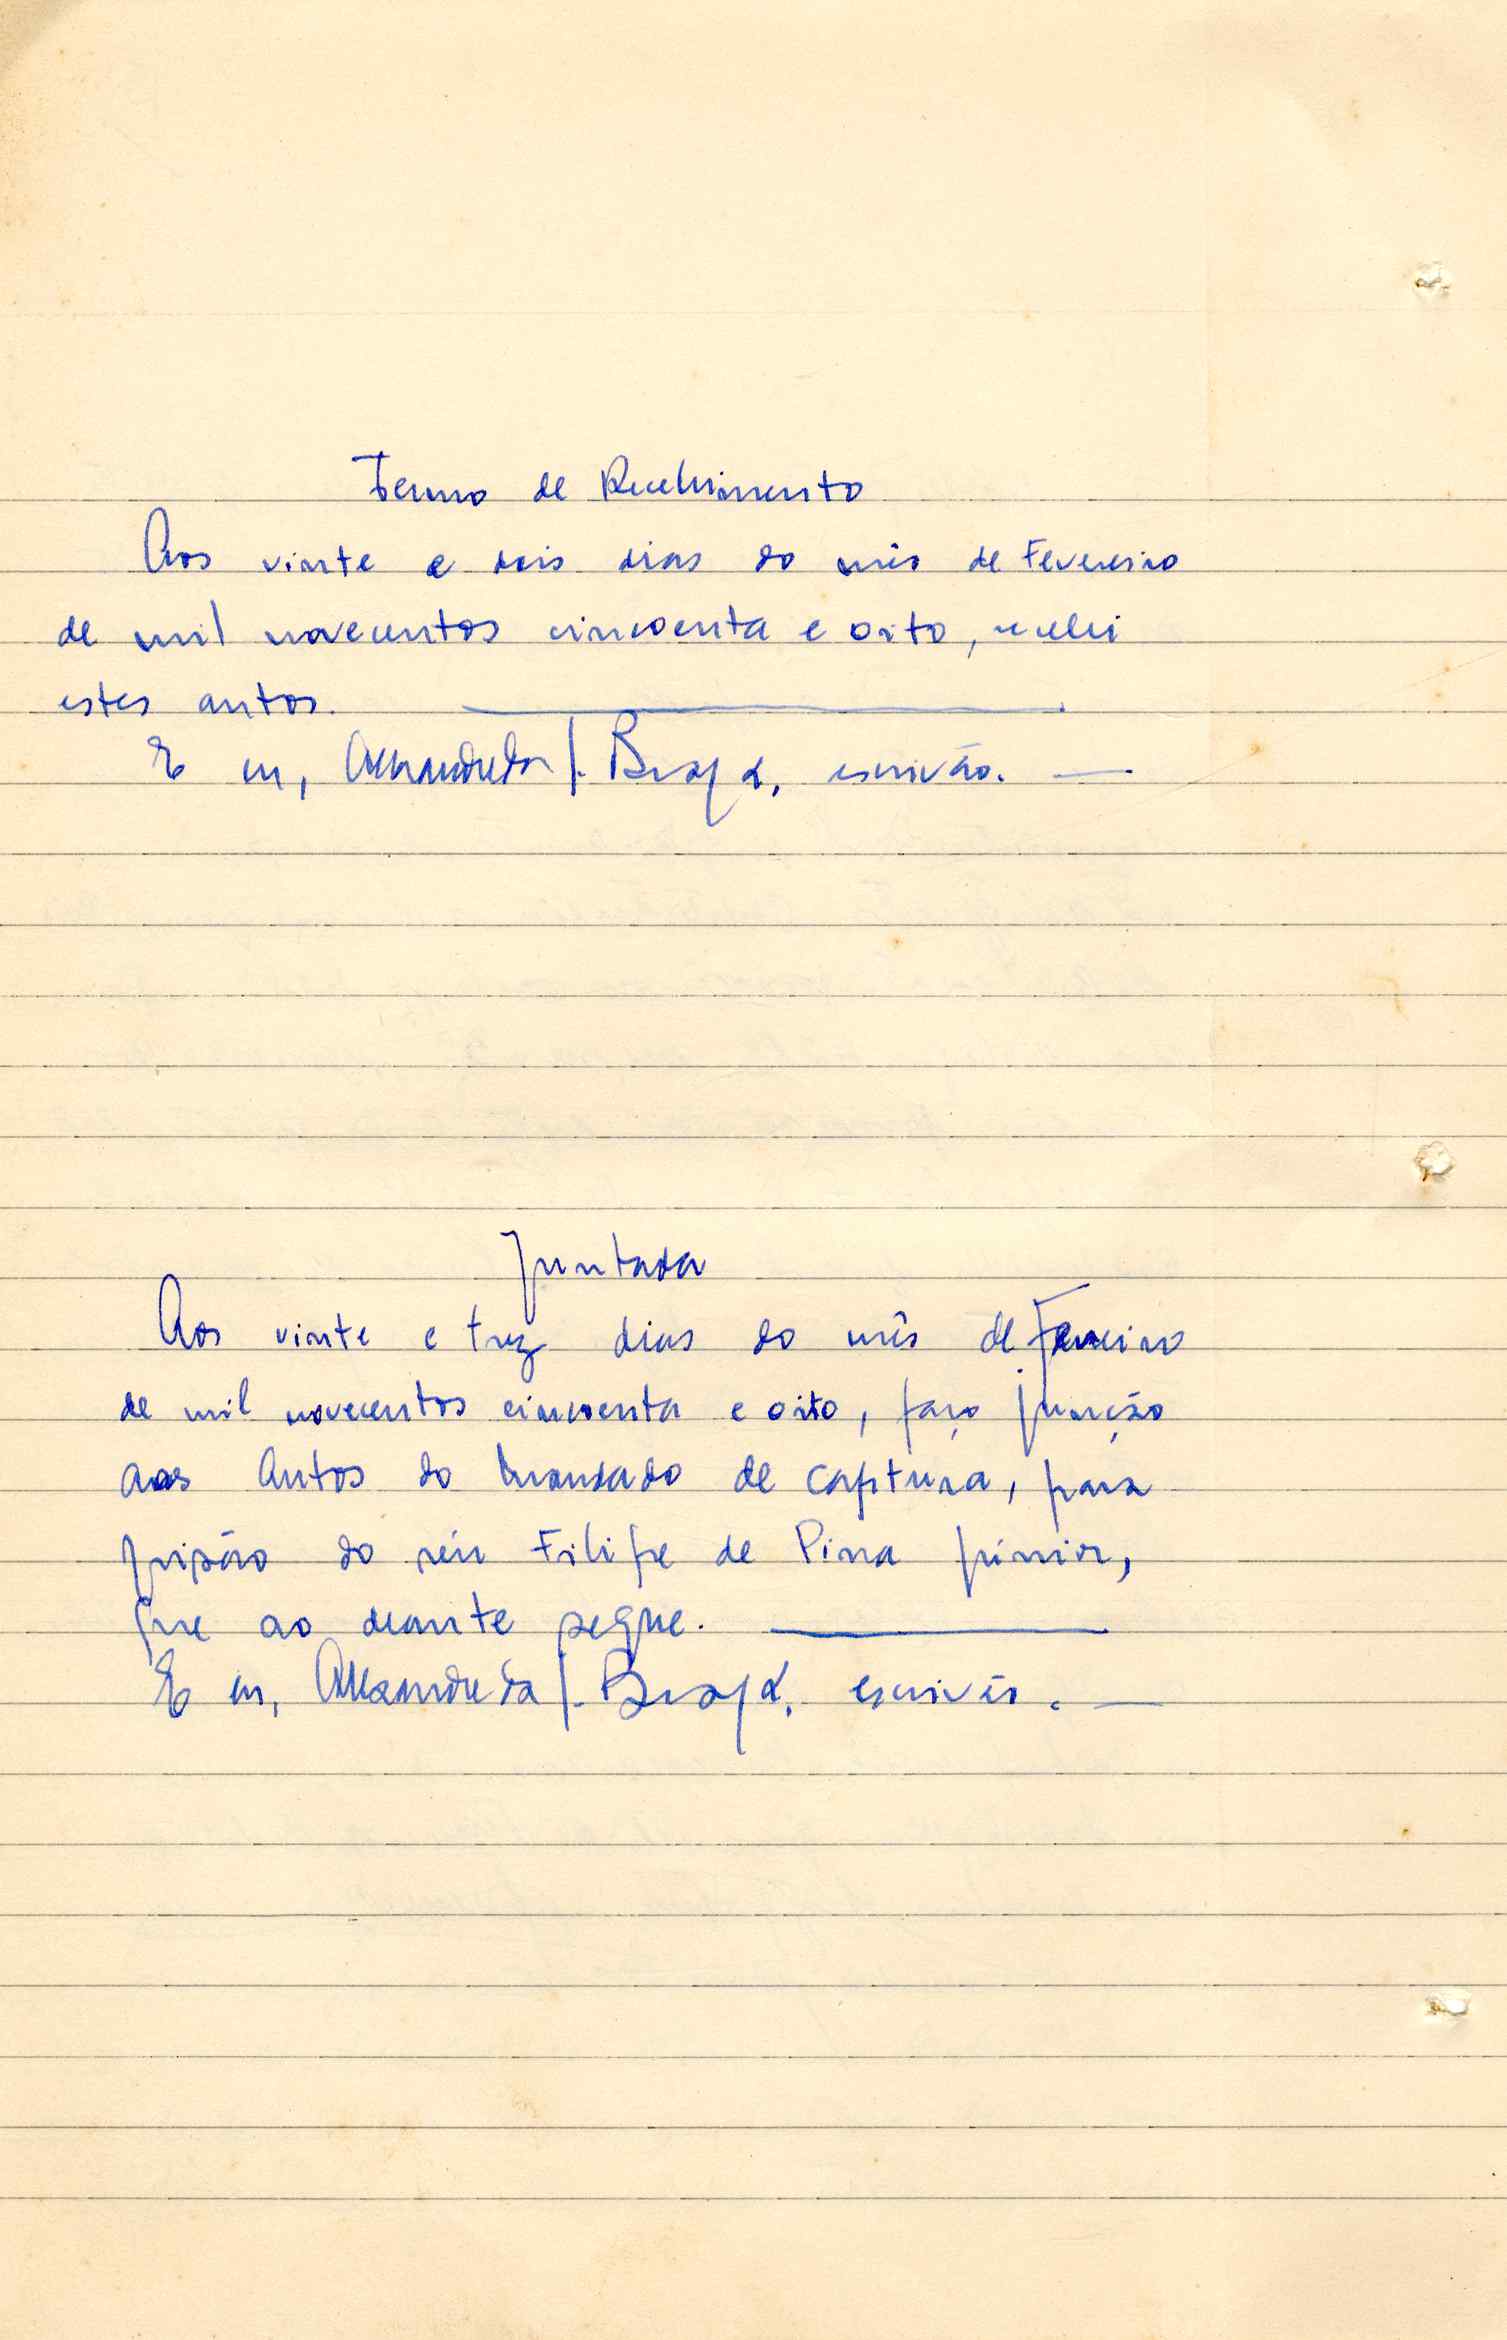 Termo de Recebimento
Aos vinte e dois dias do mês de Fevereiro
de mil novecentos cincoenta e oito, recebi
estes autos.
E eu, Alexandre da S. Braga, escrivão.
Juntada
Aos vinte e trez dias do mês de Janeiro
de mil novecentos cincoenta e oito, faço junção
aos Autos do mandado de captura, para
prisão do réu Filipe de Pina Júnior,
que ao deante segue.
E eu, Alexandre da S. Braga, escrivão.